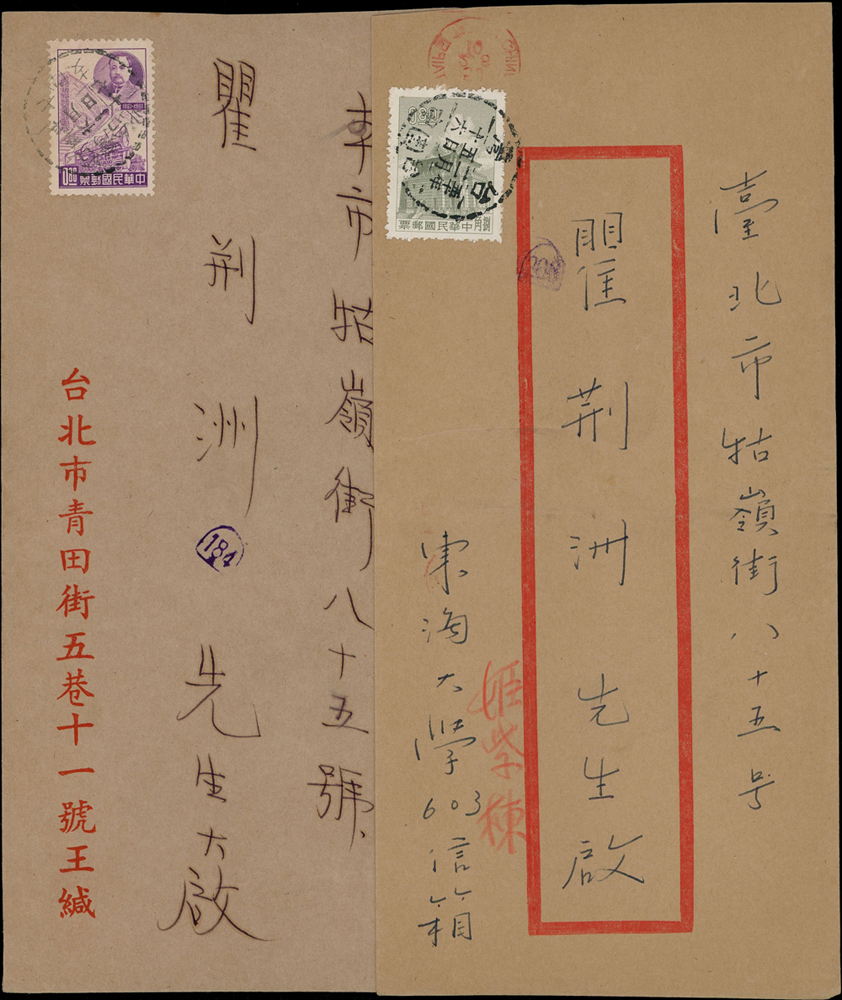 臺北市牯嶺街八十五号
瞿荆洲 先生啟
東海大學603信箱
姬紫棟
中華民國郵票
捌角
本市牯嶺街八十五號
瞿荆洲 先生大啟
184
台北市青田街五巷十一號王緘
中華民國郵票